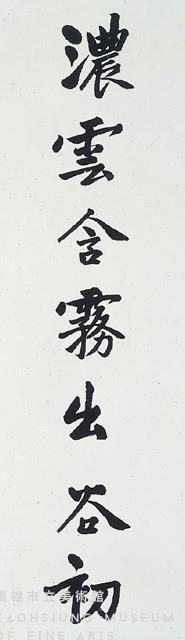 濃雲含霧出谷初
高雄市立美術館
KAOHSIUNG MUSEUM
OF FINE ARTS